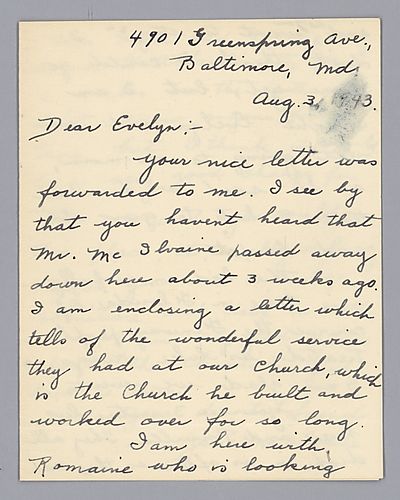 4901 Greenspring Ave.,
Baltimore, Md.
Aug. 3, 1943.
Dear Evelyn:-
Your nice letter was
forwarded to me. I see by
that you haven't heard that
Mr. Mc Ilvaine passed away
down here about 3 weeks ago.
I am enclosing a letter which
tells of the wonderful service
they had at our Church, which
is the Church he built and
worked over for so long.
I am here with
Romaine who is looking